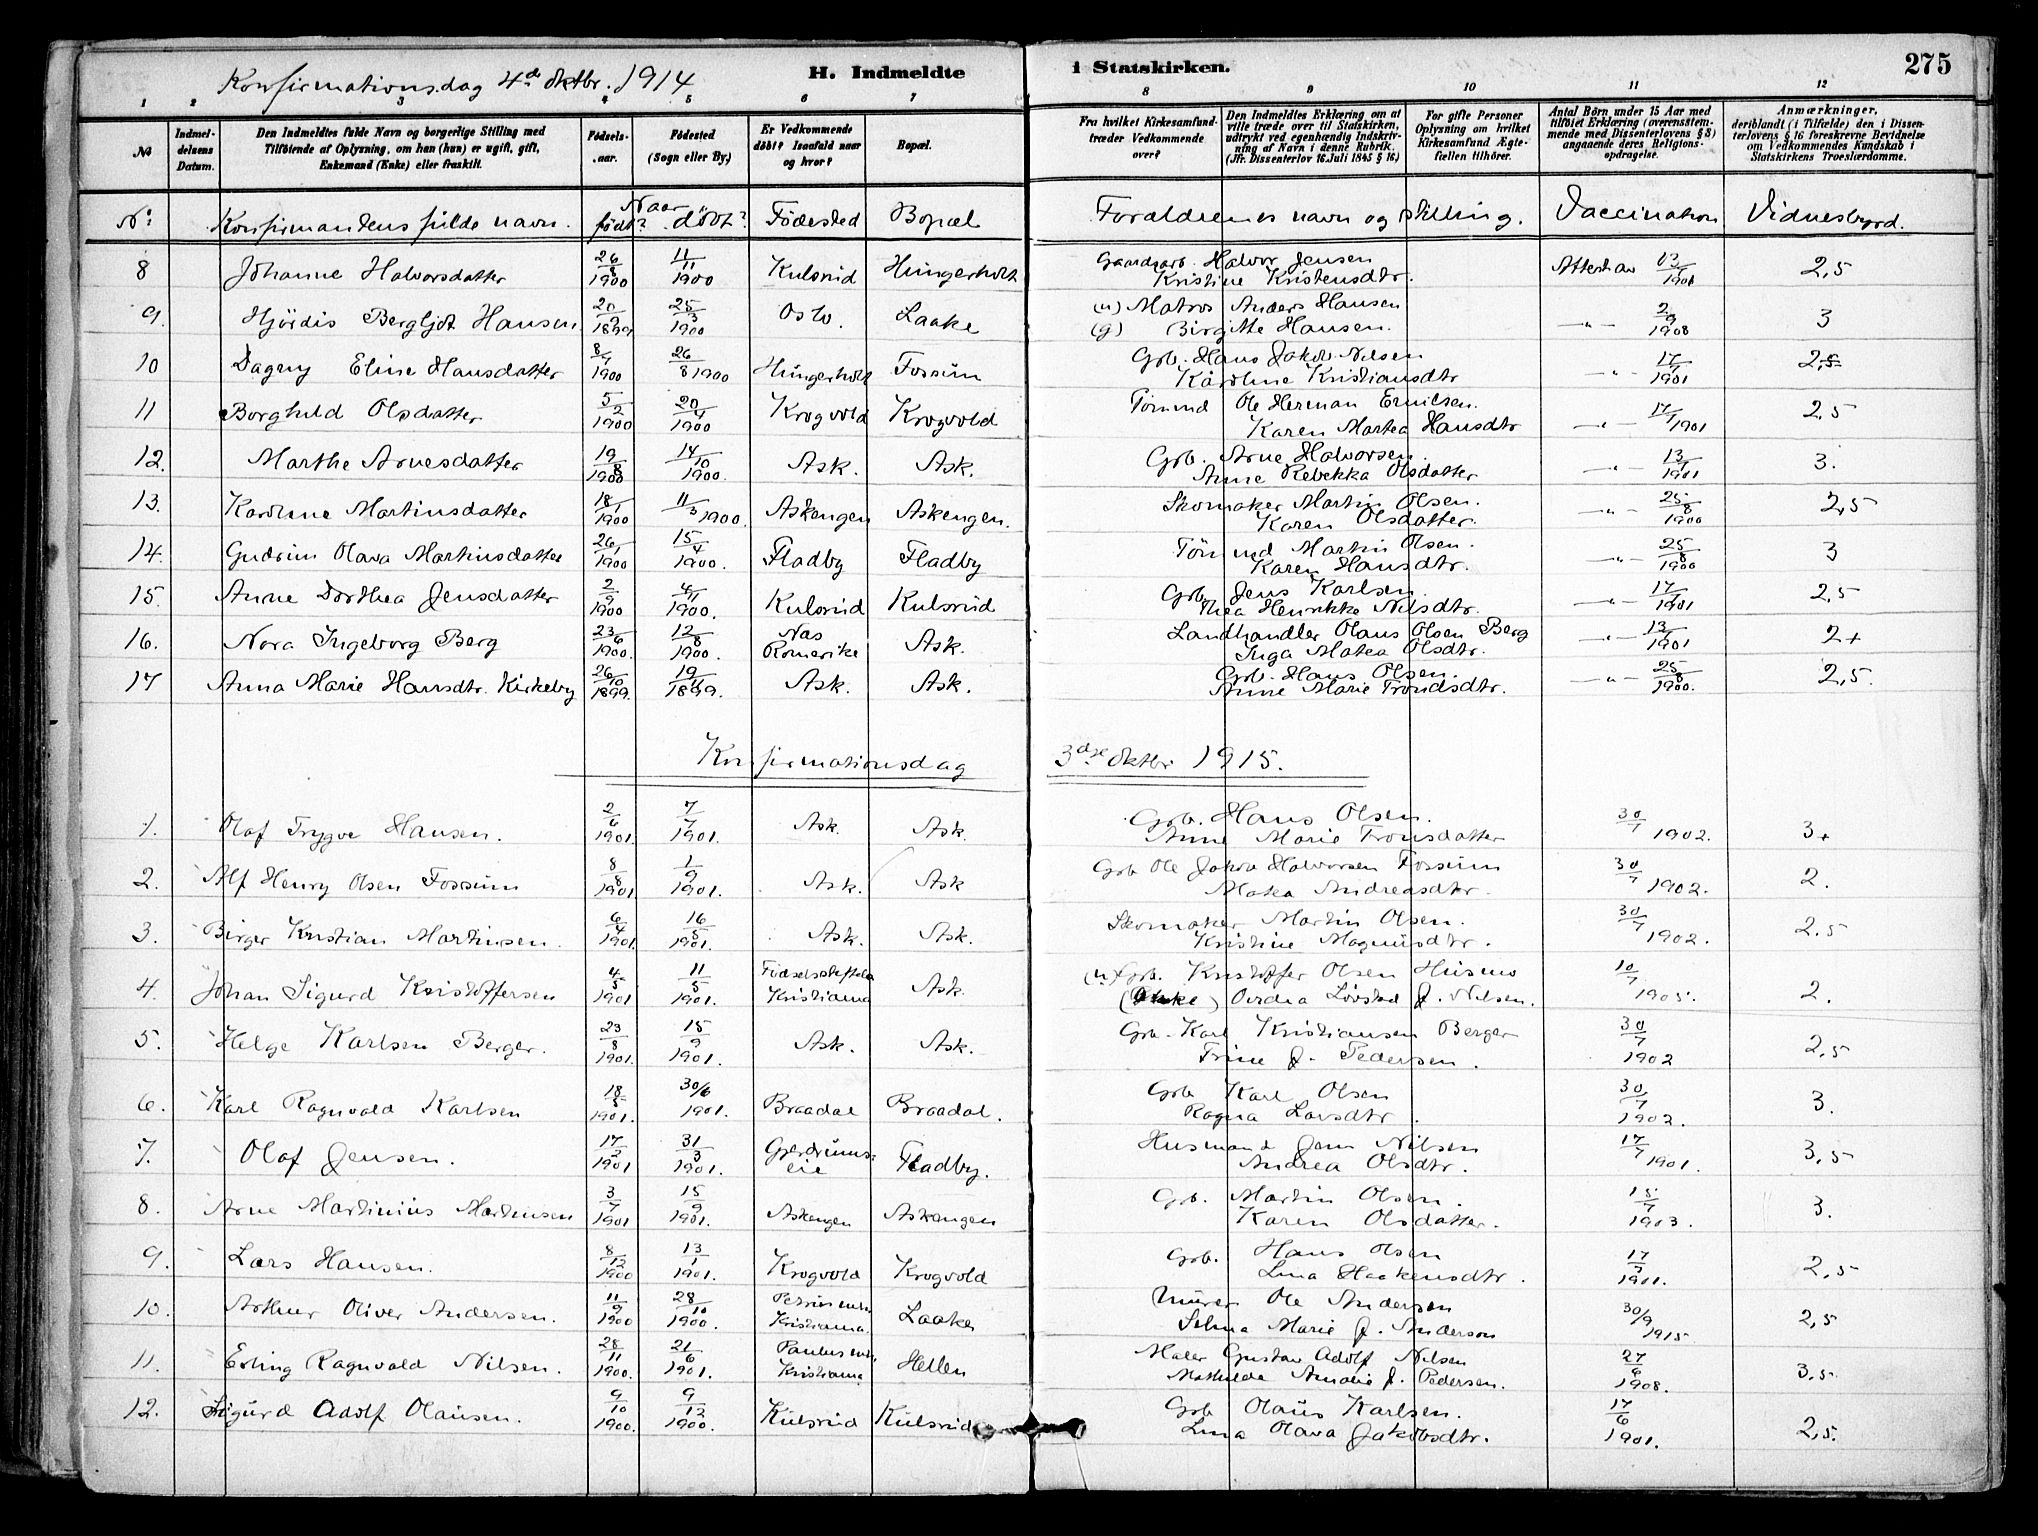 Konfirmationsdag 4de Oktbr. 1914 H. Indmeldte i Statskirken. 275
1 2 3 4 5 6 7 8 9 10 11 12
№ Indmeldelsens Datum. Den Indmeldtes fulde Navn og borgerlige Stilling med Tilföiende af Oplysning, om han (hun) er ugift, gift, Enkemand (Enke) eller fraskilt. Födselsaar. Födested (Sogn eller By.) Er Vedkommende döbt? Isaafald naar og hvor? Bopæl. Fra hvilket Kirkesamfund træder Vedkommende over? Den Indmeldtes Erklæring om at ville træde over til Statskirken, udtrykt ved egenhændig Indskrivning af Navn i denne Rubrik. (Jfr. Dissenterlov 16 Juli 1845 § 16.) For gifte Personer Oplysning om hvilket Kirkesamfund Ægtefællen tilhörer. Antal Börn under 15 Aar med tilföiet Erklæring (overensstemmende med Dissenterlovens § 8) angaaende deres Religionsopdragelse. Anmærkninger, deriblandt (i Tilfælde) den i Dissenterlovens § 16 foreskrevne Bevidnelse om Vedkommendes Kundskab i Statskirkens Troeslærdomme.
No. Konfirmandens fulde navn. Naar født? døbt? Fødested Bopæl Forældrenes navn og stilling. Vaccination Vidnesbyrd.
8 Johanne Halvorsdatter 26/8 1900 4/11 1900 Kulsrud Hungerholt Gaardarb. Halvor Jensen Kristine Kristensdtr. Attest av 1901 2,5
9. Hjørdis Bergljot Hansen 1899 25/3 1900 Oslo. Laake (u) Matros Anders Hansen (g) Birgitte Hansen. —"— 2/9 1908 3
10 Dagny Eline Hansdatter 8/7 1900 26/8 1900 Hungerholt Fossum Grb. Hans Jakob Nilsen Karoline Kristiansdtr —"— 17/7 1901 2,5
11 Borghild Olsdatter 5/2 1900 20/4 1900 Krogvold Krogvold Tømmd Ole Herman Emilsen. Karen Martea Hansdtr —"— 17/7 1901 2,5
12. Marthe Arnesdatter 19/8 1900 14/10 1900. Ask. Ask. Grb. Arne Halvorsen. Anne Rebekka Olsdatter —"— 13/7 1901 3.
13. Karoline Martinsdatter 18/1 1900 11/3 1900. Askengen Askengen. Skomaker Martin Olsen. Karen Olsdatter. —"— 25/8 1900 2,5
14. Gudrun Olava Martinsdatter 26/1 1900 15/4 1900. Fladby Fladby Tømmd Martin Olsen. Karen Hansdtr. —"— 25/8 1900 3
15. Anne Dorthea Jensdatter 2/9 1900 4/11 1900. Kulsrud Kulsrud Grb. Jens Karlsen. Thea Henrikke Nilsdtr. —"— 17/7 1901 2,5
16. Nora Ingeborg Berg 23/6 1900. 12/8 1900. Nas Romerike Ask. Landhandler Olaus Olsen Berg Inga Matea Olsdtr. —"— 13/7 1901 2+
17 Anna Marie Hansdtr. Kirkeby 26/10 1899. 19/11 1899. Ask. Ask. Grb. Hans Olsen. Anne Marie Trondsdtr. —"— 25/8 1900. 2,5.
Konfirmationsdag 3dje Oktbr 1915.
1. Olaf Trygve Hansen. 2/6 1901. 7/7 1901. Ask. Ask. Grb. Hans Olsen. Anne Marie Tronsdatter 30/7 1902. 3+
2. Alf Henry Olsen Fossum 8/8 1901 1/9 1901. Ask. Ask Grb Ole Jakob Halvorsen Fossum Matea Andreasdtr. 30/7 1902. 2.
3. Birger Kristian Martinsen. 6/4 1901. 16/5 1901. Ask. Ask. Skomaker Martin Olsen. Kristine Magnusdtr. 30/7 1902. 2.5
4. Johan Sigurd Kristoffersen 4/5 1901 11/5 1901. Fødselsstiftels Kristiania Ask. (u) Grb. Kristoffer Olsen Husmo (Enke) Ovidia Løvstad f. Nilsen. 10/7 1905. 2.
5. Helge Karlsen Berger. 23/8 1901. 15/9 1901. Ask. Ask. Grb. Karl Kristiansen Berger Trine f. Pedersen. 30/7 1902 2,5
6. Karl Ragnvald Karlsen 18/5 1901. 30/6 1901. Braadal Braadal. Grb Karl Olsen Ragna Larsdtr. 30/7 1902. 3.
7. Olaf Jensen. 17/2 1901 31/3 1901. Gjerdrumseie Fladby. Husmand Jens Nilsen Andrea Olsdtr. 17/7 1901. 3,5
8. Arne Martinius Martinsen 3/7 1901 15/9 1901. Askengen Askengen Grb. Martin Olsen. Karen Olsdatter. 15/7 1903. 3.
9. Lars Hansen. 8/12 1900 13/1 1901. Krogvold Krogvold Grb. Hans Olsen Lina Haakensdtr. 17/7 1901. 2,5
10. Arthur Oliver Andersen. 11/9 1900 28/10 1900. Petrus men. Kristiania. Laake Murer Ole Andersen Selma Marie f. Anderson 30/9 1915. 2,5
11. Erling Ragnvald Nilsen. 28/11 1900. 21/6 1901. Paulus men. Kristiania Hellen Maler Gustav Adolf Nilsen Mathilde Amalie f. Pedersen. 27/6 1908. 3,5.
12. Sigurd Adolf Olausen. 9/10 1900. 9/12 1900. Kulsrud Kulsrud Grb Olaus Karlsen. Lina Olava Jakobsdtr. 17/6 1901. 2,5.